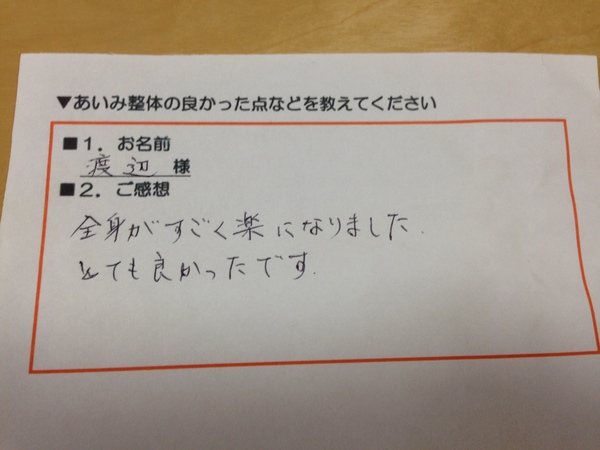 ▼あいみ整体の良かった点などを教えてください
■1．お名前
渡辺 様
■2．ご感想
全身がすごく楽になりました.
とても良かったです.